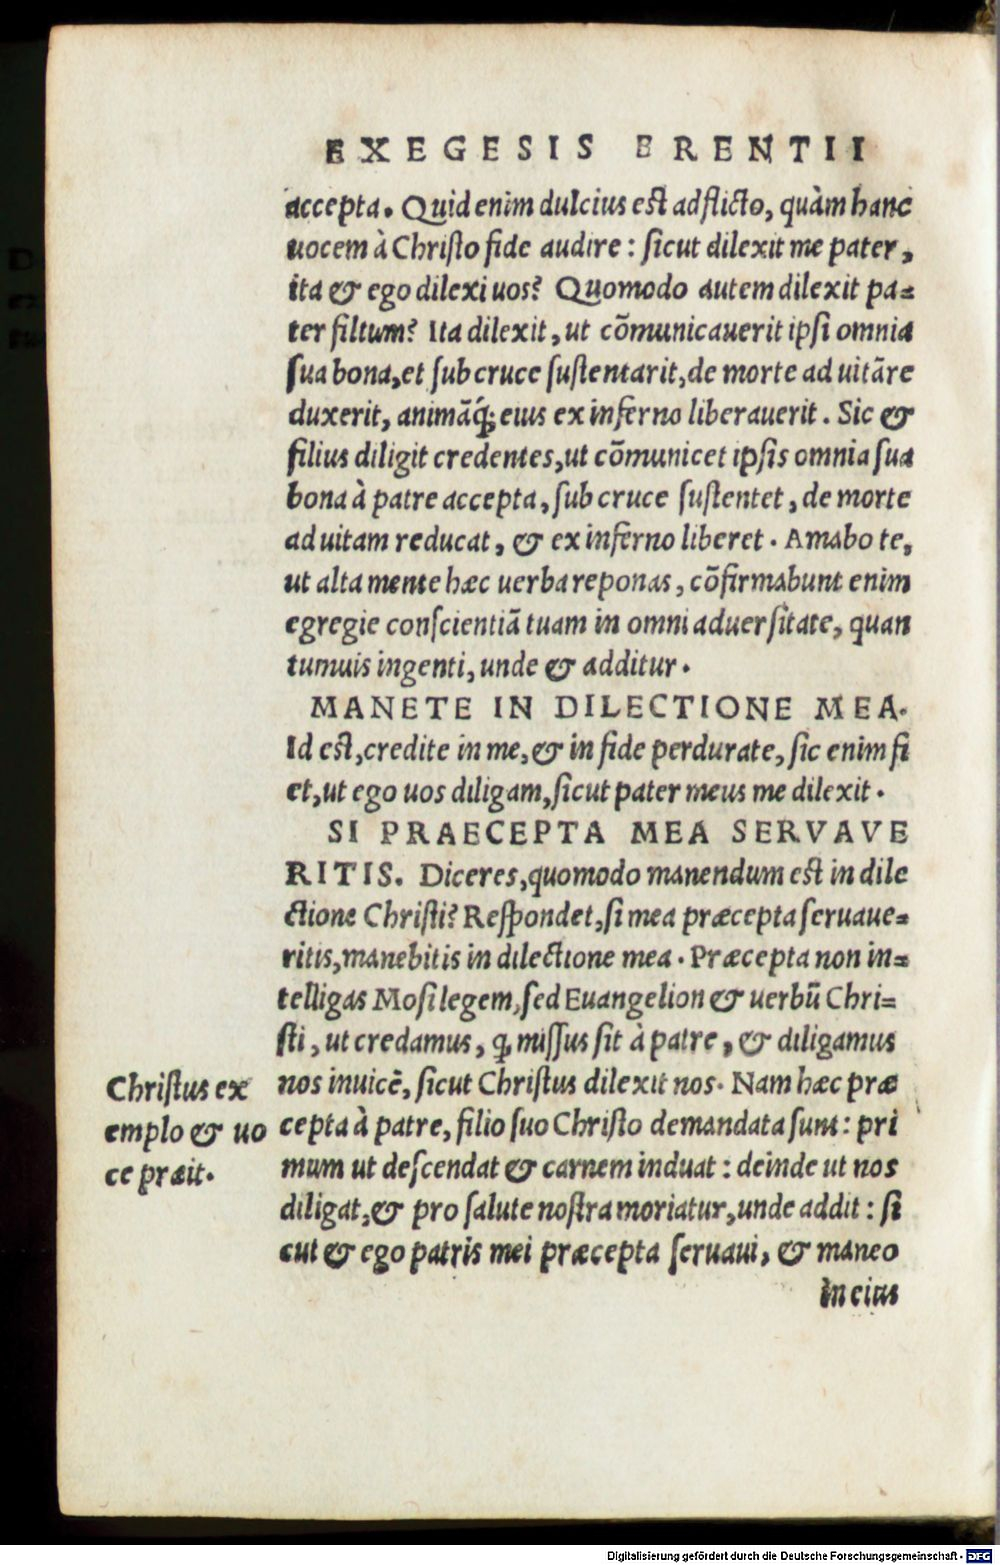 EXEGESIS BRENTII
accepta. Quid enim dulcius est adflicto, quàm hanc
uocem à Christo fide audire: sicut dilexit me pater,
ita & ego dilexi uos? Quomodo autem dilexit pa=
ter filium? Ita dilexit, ut cõmunicauerit ipsi omnia
sua bona, et sub cruce sustentarit, de morte ad uitãre
duxerit, animãq́; eius ex inferno liberauerit. Sic &
filius diligit credentes, ut cõmunicet ipsis omnia sua
bona à patre accepta, sub cruce sustentet, de morte
ad uitam reducat, & ex inferno liberet. Amabo te,
ut alta mente hæc uerba reponas, cõfirmabunt enim
egregie conscientiã tuam in omni aduersitate, quan
tumuis ingenti, unde & additur.
MANETE IN DILECTIONE MEA.
Id est, credite in me, & in fide perdurate, sic enim fi
et, ut ego uos diligam, sicut pater meus me dilexit.
SI PRAECEPTA MEA SERVAVE
RITIS. Diceres, quomodo manendum est in dile
ctione Christi? Respondet, si mea præcepta seruaue=
ritis, manebitis in dilectione mea. Præcepta non in=
telligas Mosi legem, sed Euangelion & uerbũ Chri=
sti, ut credamus, ꝙ missus sit à patre, & diligamus
nos inuicẽ, sicut Christus dilexit nos. Nam hæc præ
cepta à patre, filio suo Christo demandata sunt: pri
mum ut descendat & carnem induat: deinde ut nos
diligat, & pro salute nostra moriatur, unde addit: si
cut & ego patris mei præcepta seruaui, & maneo
in eius
Christus ex
emplo & uo
ce præit.
Digitalisierung gefördert durch die Deutsche Forschungsgemeinschaft - DFG